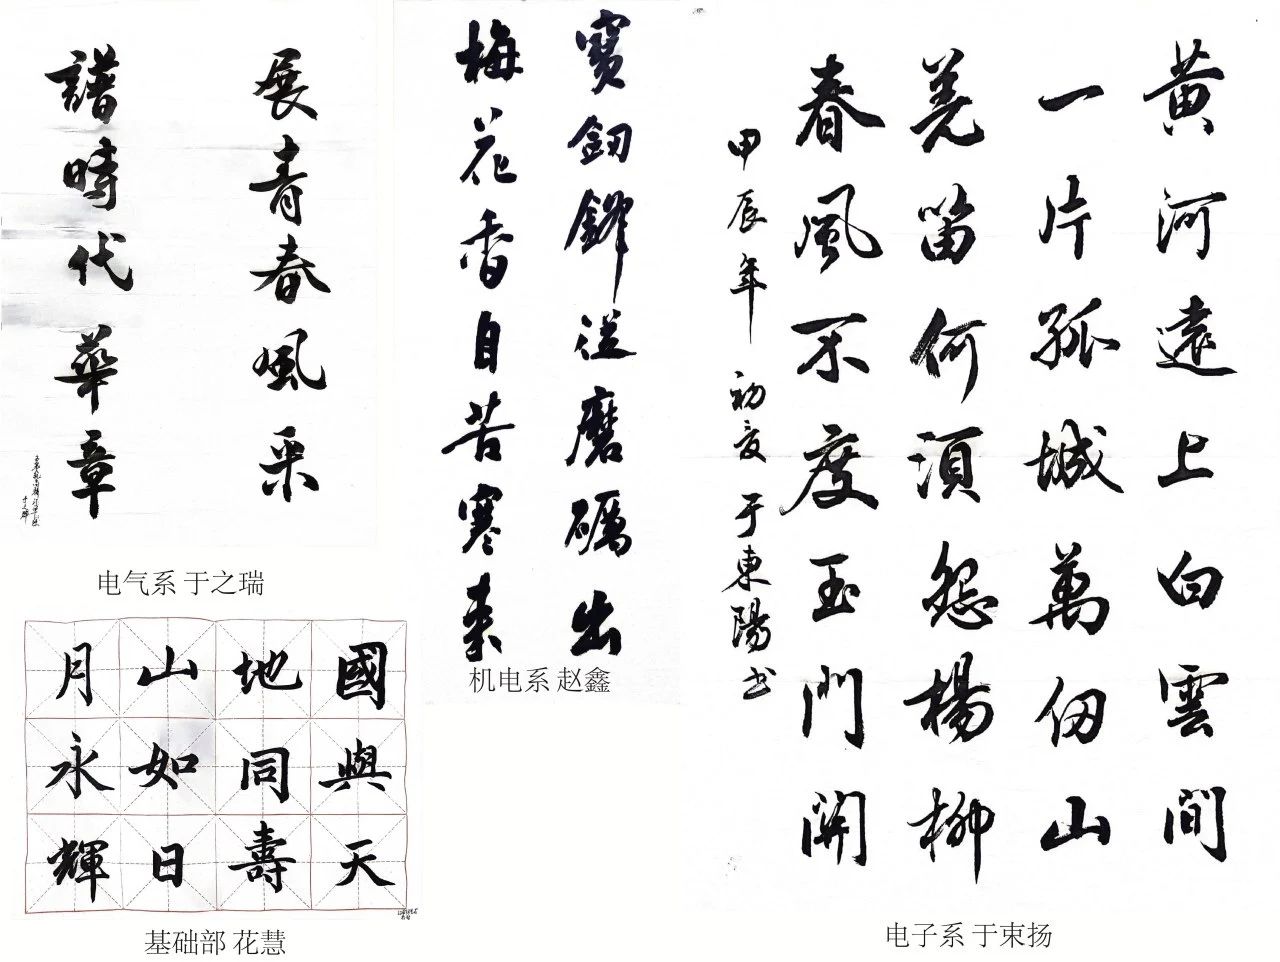 展青春風采
譜時代華章
电气系 于之瑞
寶釰鋒從磨礪出
梅花香自苦寒来
机电系 赵鑫
黄河遠上白雲間
一片孤城萬仞山
羌笛何須怨楊柳
春風不度玉門關
甲辰年 初夏 于東陽书
电子系 于束扬
國與天
地同壽
山如日
月永輝
基础部 花慧